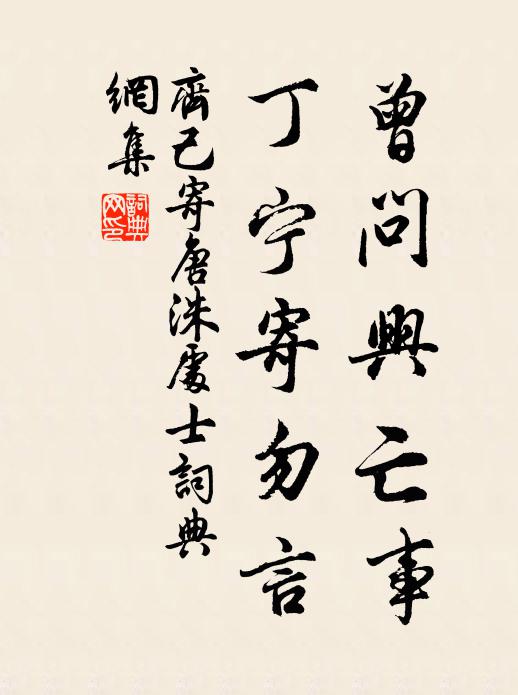 曾問興亡事
丁宁寄勿言
齊己寄唐洙處士詞典
網集
詞典
网印